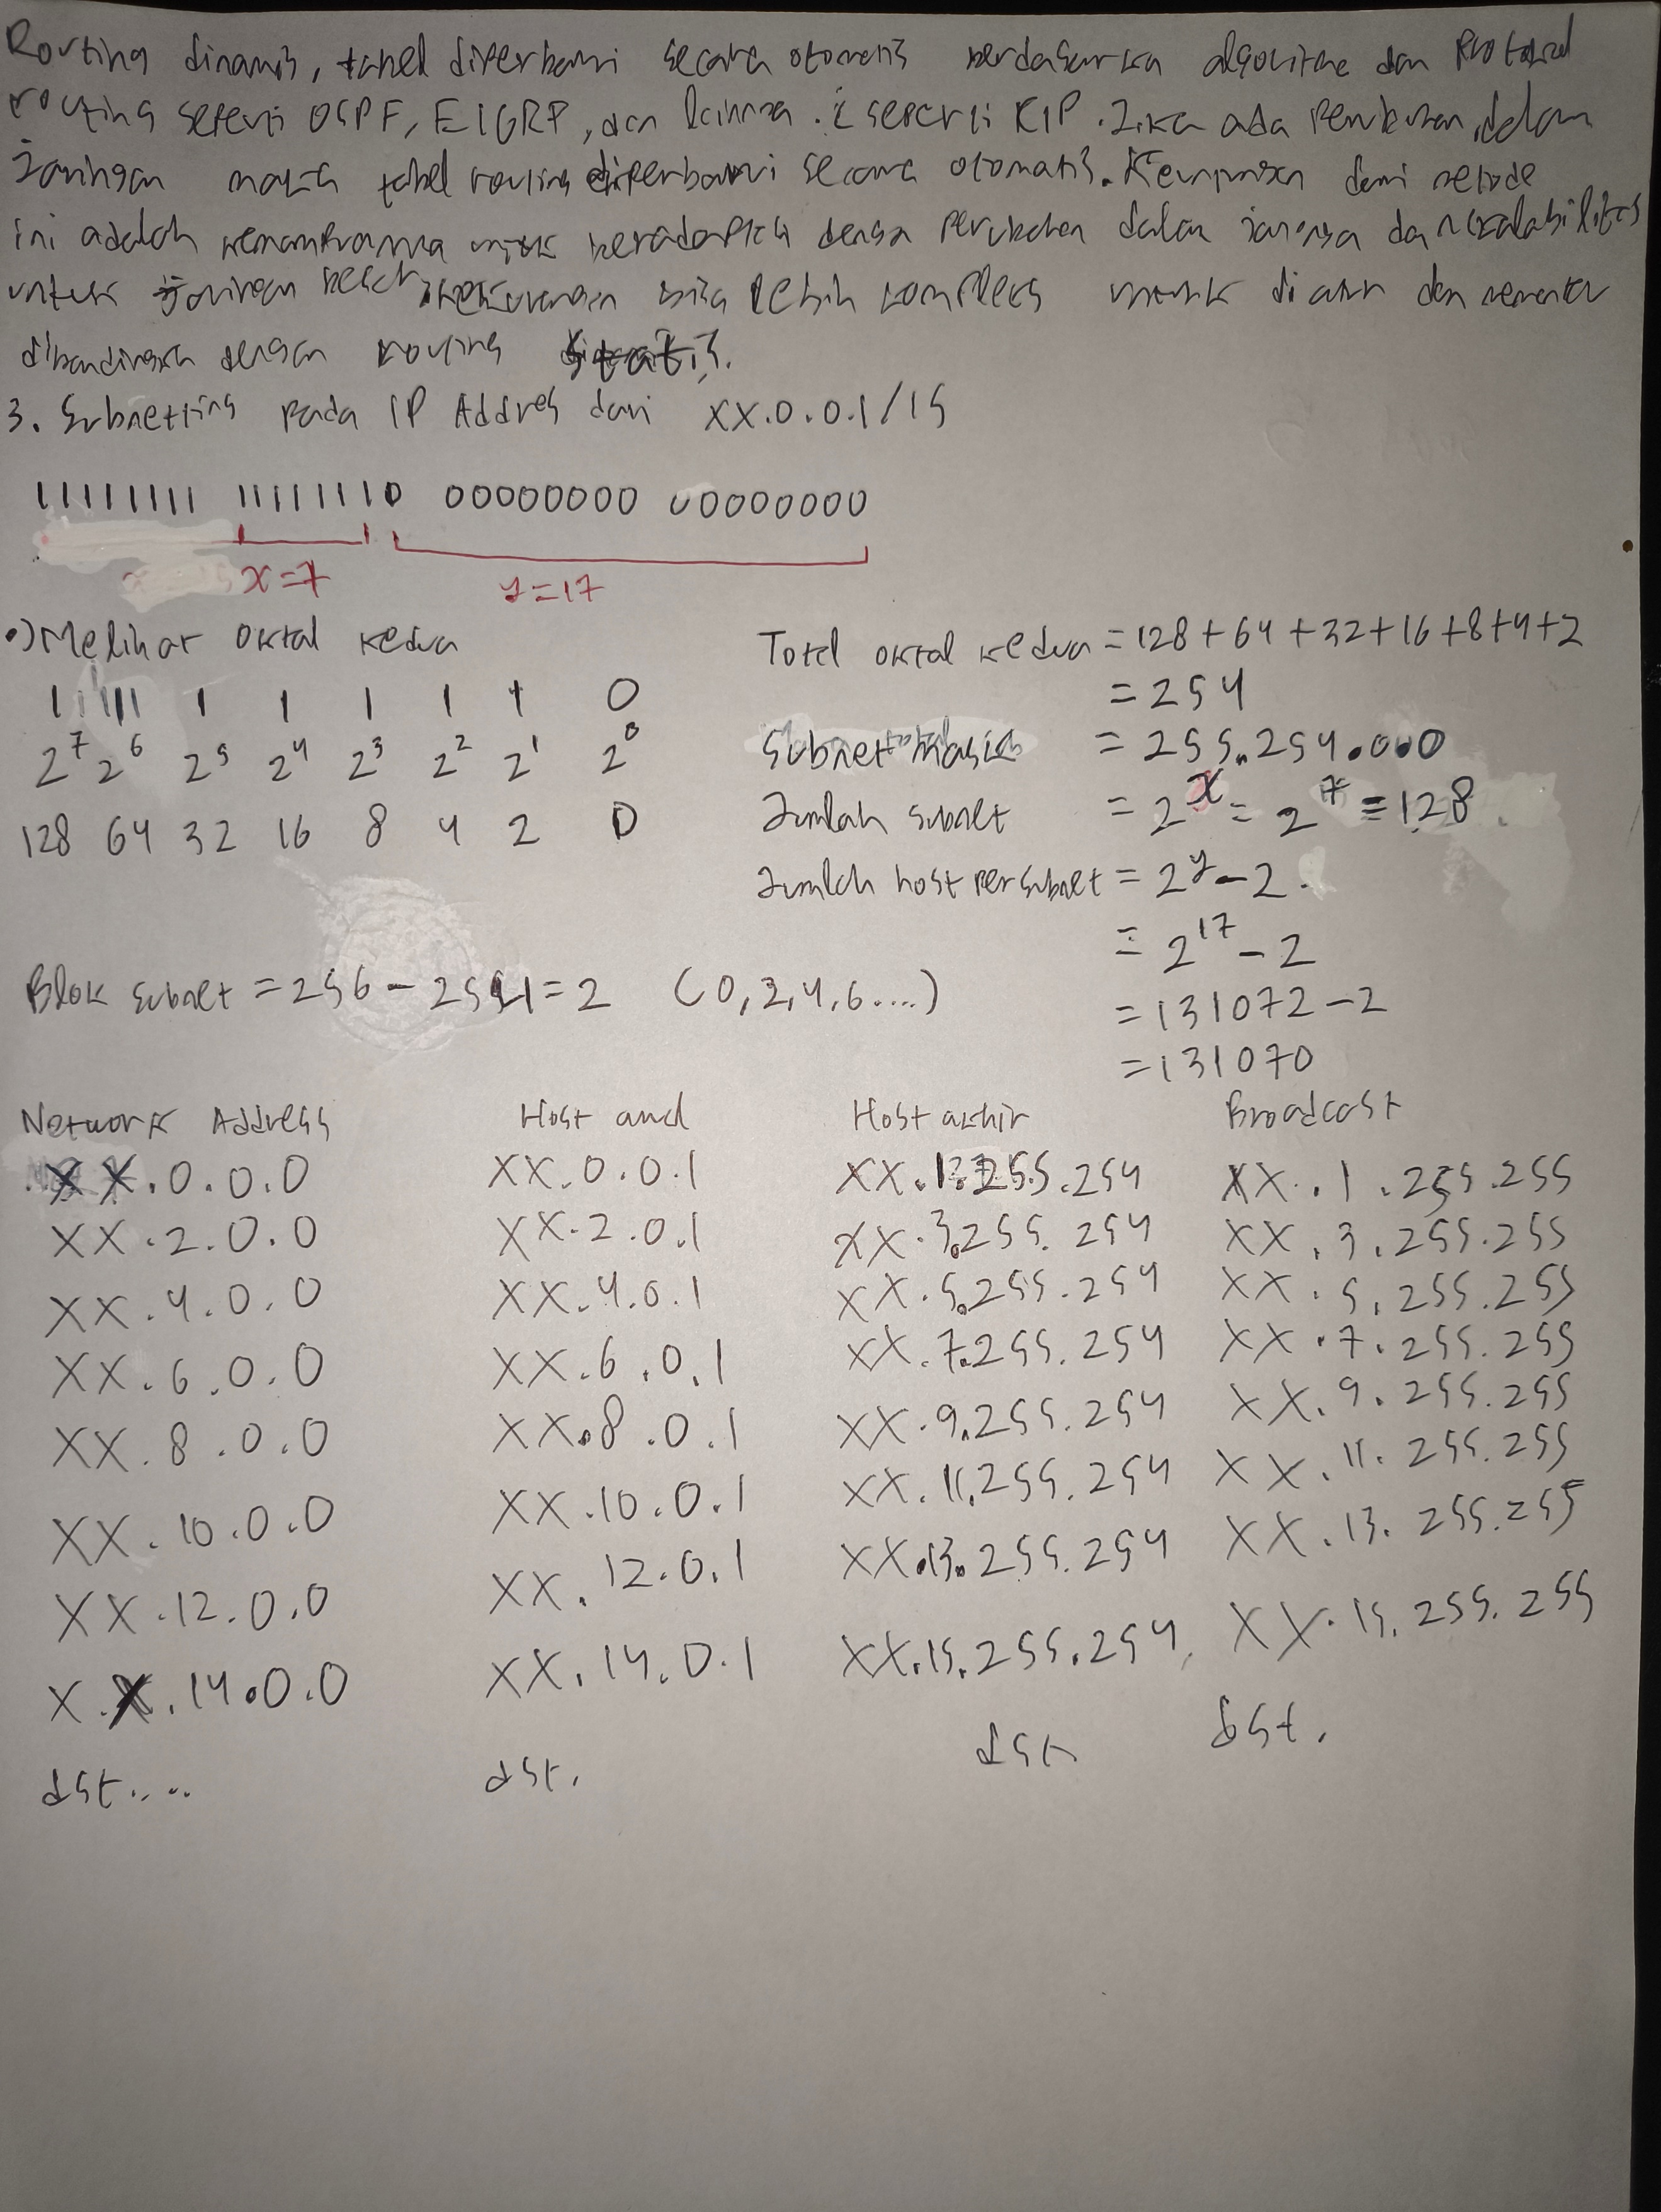 Routing dinamis, tabel diperbarui secara otomatis berdasarkan algoritme dan Protokol
routing seperti OSPF, EIGRP, dan lainnya. seperti RIP. Jika ada Perubahan dalam
jaringan maka tabel routing diperbarui secara otomatis. Keunggulan dari metode
ini adalah kemampuannya untuk beradaptasi dengan Perubahan dalam jaringan dan skalabilitas
untuk jaringan besar, kekurangan bisa lebih kompleks untuk diatur dan
dibandingkan dengan routing statis.
3. Subnetting Pada IP Addres dari XX.0.0.1/15
11111111 11111110 00000000 00000000
x=7 y=17
•) Melihat oktal kedua
1 1 1 1 1 1 1 0
2^7 2^6 2^5 2^4 2^3 2^2 2^1 2^0
128 64 32 16 8 4 2 0
Total oktal kedua = 128+64+32+16+8+4+2
= 254
Subnet mask = 255.254.0.0
Jumlah subnet = 2^x = 2^7 = 128
Jumlah host per subnet = 2^y - 2
= 2^17 - 2
= 131072 - 2
= 131070
Blok subnet = 256 - 254 = 2 (0,2,4,6....)
Network Address Host awal Host akhir Broadcast
XX.0.0.0 XX.0.0.1 XX.1.255.254 XX.1.255.255
XX.2.0.0 XX.2.0.1 XX.3.255.254 XX.3.255.255
XX.4.0.0 XX.4.0.1 XX.5.255.254 XX.5.255.255
XX.6.0.0 XX.6.0.1 XX.7.255.254 XX.7.255.255
XX.8.0.0 XX.8.0.1 XX.9.255.254 XX.9.255.255
XX.10.0.0 XX.10.0.1 XX.11.255.254 XX.11.255.255
XX.12.0.0 XX.12.0.1 XX.13.255.254 XX.13.255.255
X.X.14.0.0 XX.14.0.1 XX.15.255.254 XX.15.255.255
dst.... dst. dst dst.